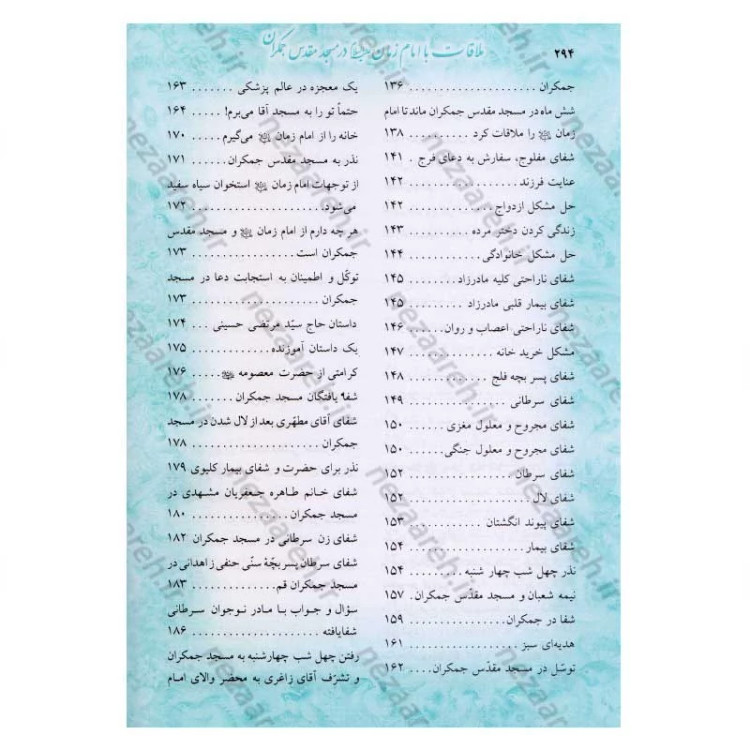 ۲۹۴
ملاقات با امام زمان در مسجد مقدس جمکران
جمکران ..................... ۱۳۶
شش ماه در مسجد مقدس جمکران ماند تا امام
زمان را ملاقات کرد .......... ۱۳۸
شفای مفلوج، سفارش به دعای فرج . ۱۴۱
عنایت فرزند .................. ۱۴۲
حل مشکل ازدواج .............. ۱۴۲
زندگی کردن دختر مرده .......... ۱۴۳
حل مشکل خانوادگی ............ ۱۴۴
شفای ناراحتی کلیه مادرزاد ....... ۱۴۵
شفای بیمار قلبی مادرزاد ......... ۱۴۵
شفای ناراحتی اعصاب و روان ..... ۱۴۶
مشکل خرید خانه .............. ۱۴۷
شفای پسر بچه فلج ............. ۱۴۸
شفای سرطانی ................. ۱۴۹
شفای مجروح و معلول مغزی ..... ۱۵۰
شفای مجروح و معلول جنگی ..... ۱۵۰
شفای سرطان .................. ۱۵۲
شفای لال ..................... ۱۵۲
شفای پیوند انگشتان ............ ۱۵۳
شفای بیمار .................... ۱۵۴
نذر چهل شب چهار شنبه ......... ۱۵۴
نیمه شعبان و مسجد مقدّس جمکران. ۱۵۷
شفا در جمکران ................ ۱۵۹
هدیه‌ای سبز ................... ۱۶۱
توسّل در مسجد مقدّس جمکران .... ۱۶۲
یک معجزه در عالم پزشکی ....... ۱۶۳
حتماً تو را به مسجد آقا می‌برم! ..... ۱۶۴
خانه را از امام زمان می‌گیرم .... ۱۷۰
نذر به مسجد مقدس جمکران ..... ۱۷۱
از توجهات امام زمان استخوان سیاه سفید
می‌شود ...................... ۱۷۲
هر چه دارم از امام زمان و مسجد مقدس
جمکران است ................. ۱۷۳
توکّل و اطمینان به استجابت دعا در مسجد
جمکران ..................... ۱۷۳
داستان حاج سیّد مرتضی حسینی ... ۱۷۴
یک داستان آموزنده ............. ۱۷۵
کرامتی از حضرت معصومه ..... ۱۷۶
شفا یافتگان مسجد جمکران ....... ۱۷۸
شفای آقای مطهّری بعد از لال شدن در مسجد
جمکران ..................... ۱۷۸
نذر برای حضرت و شفای بیمار کلیوی ۱۷۹
شفای خانم طاهره جعفریان مشهدی در
مسجد جمکران ................ ۱۸۰
شفای زن سرطانی در مسجد جمکران ۱۸۲
شفای سرطان پسربچّهٔ سنّی حنفی زاهدانی در
مسجد جمکران قم .............. ۱۸۳
سؤال و جواب بـا مـادر نوجوان سرطانی
شفایافته ..................... ۱۸۶
رفتن چهل شب چهارشنبه به مسجد جمکران
و تشرّف آقای زاغری به محضر والای امام
nezaareh.ir